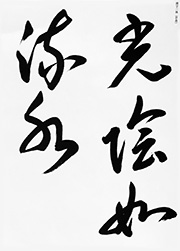 光陰如
流水